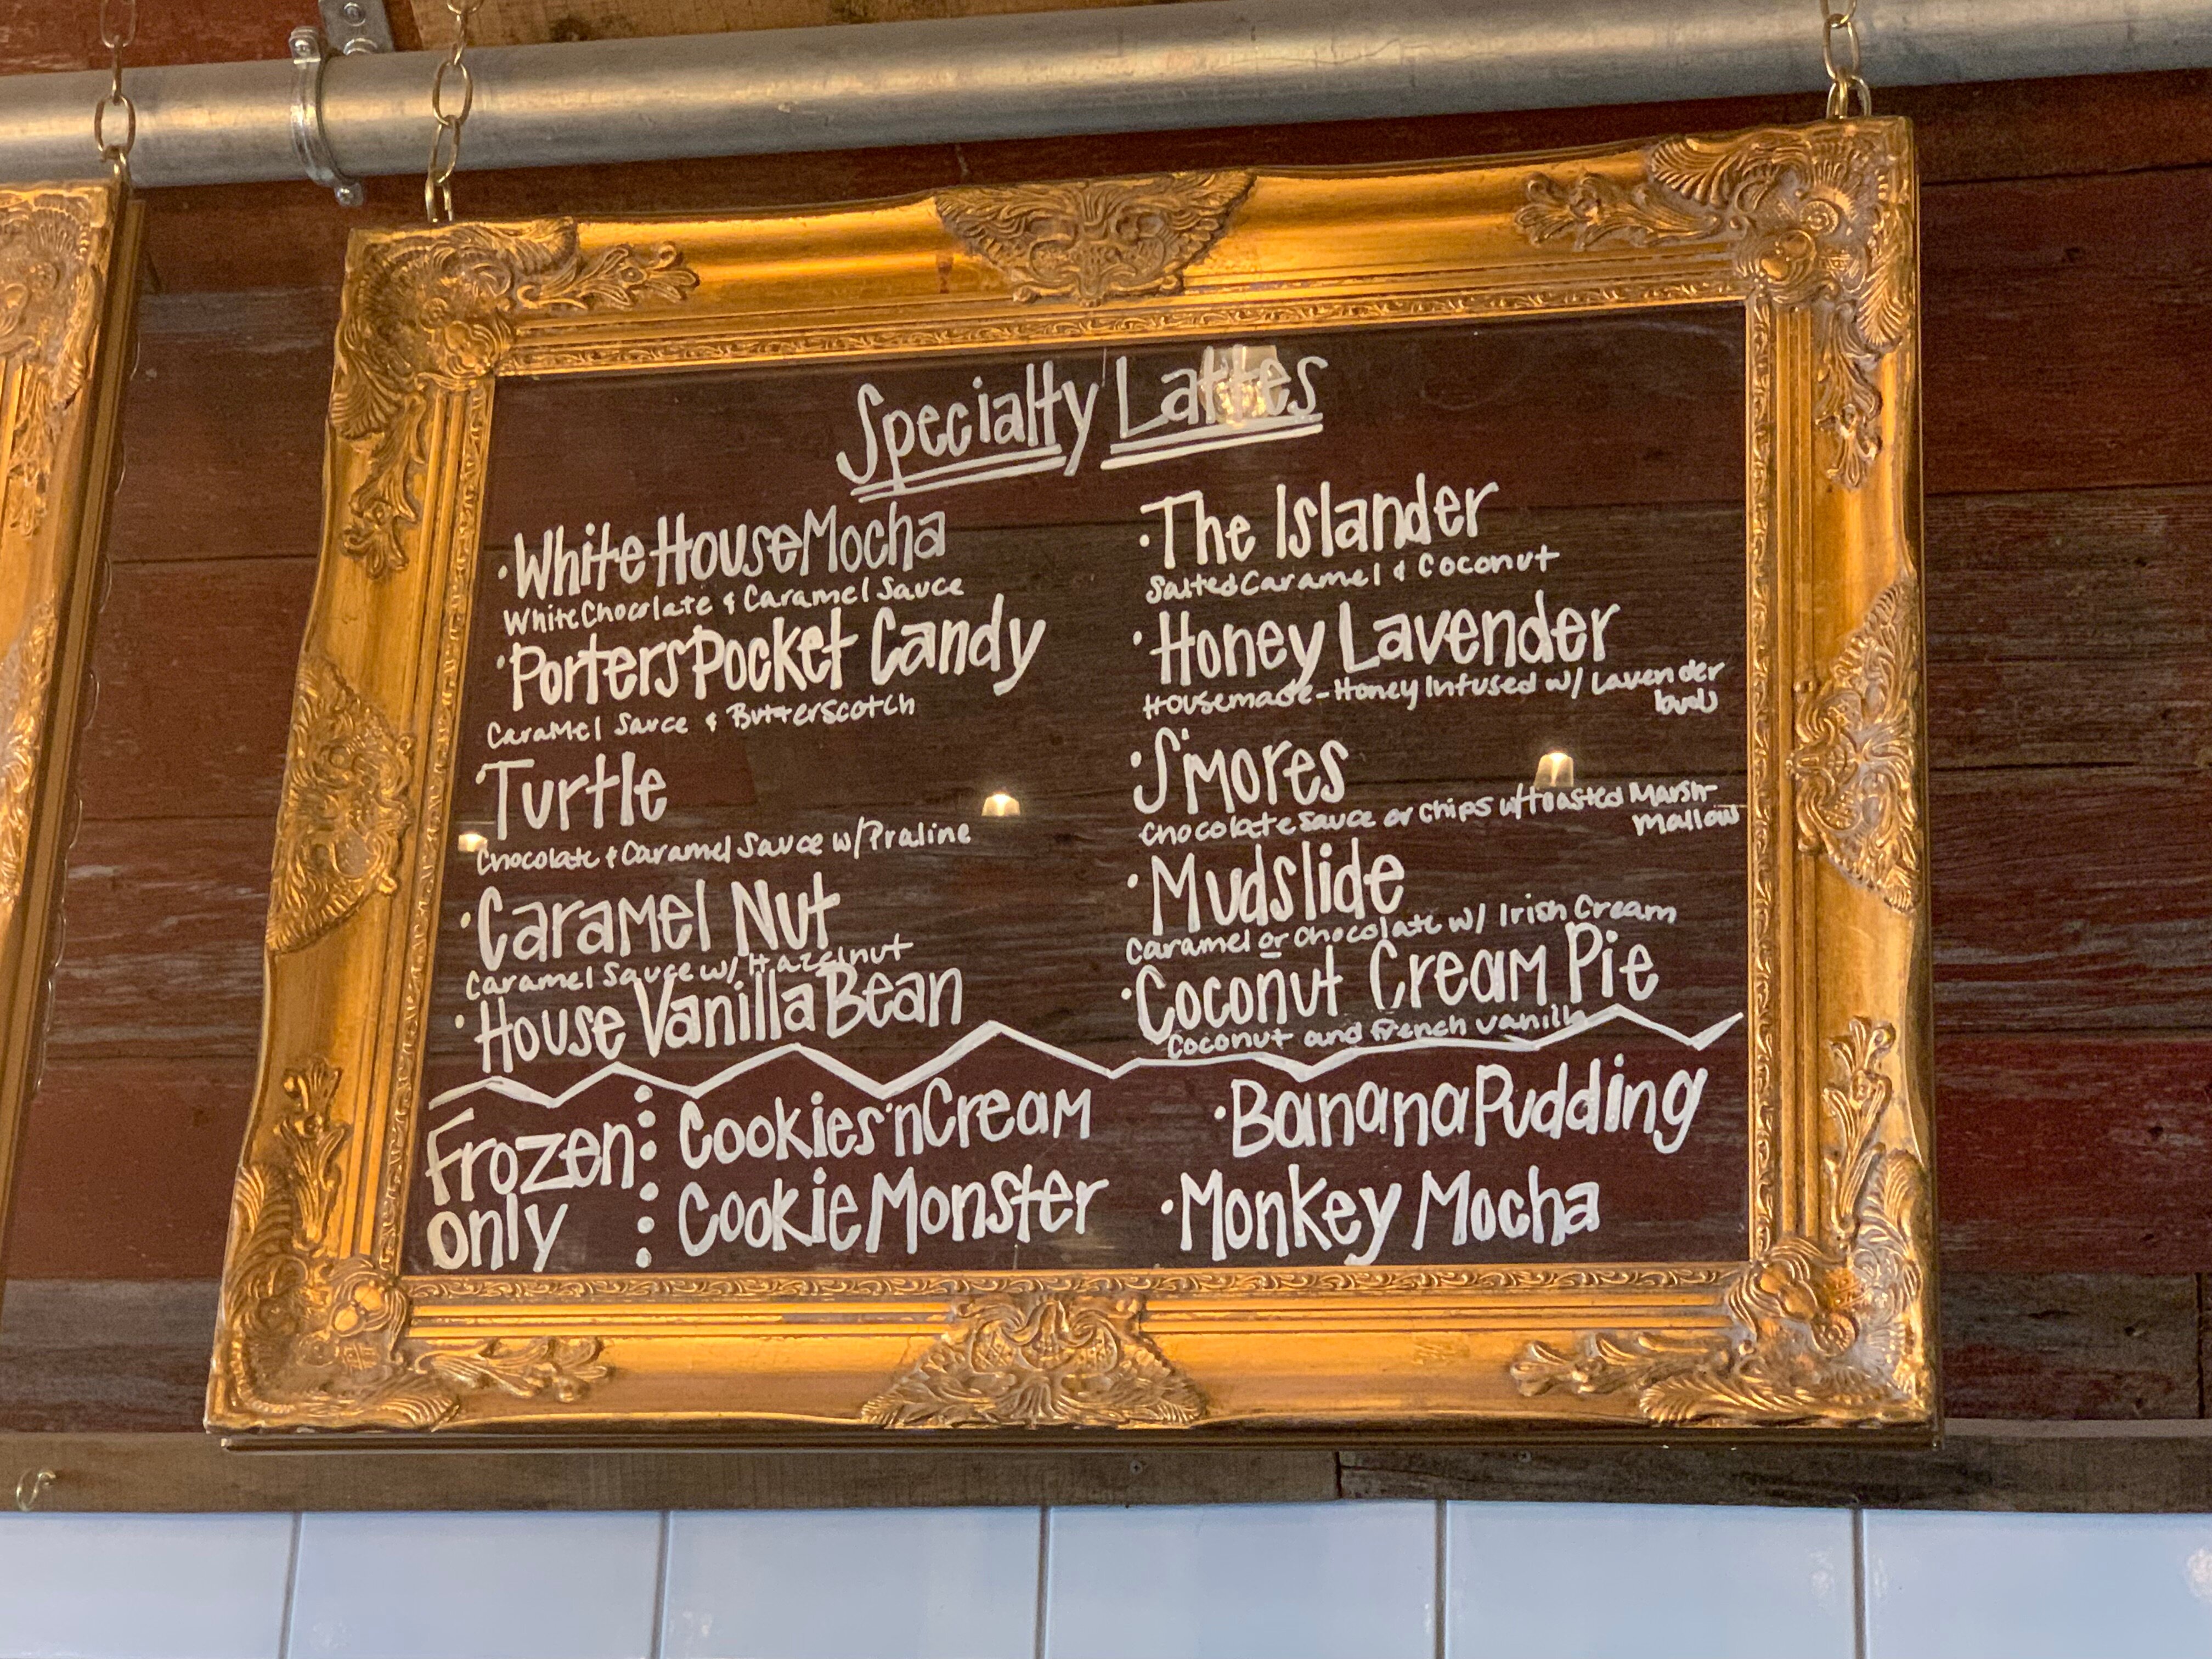 Specialty Lattes
· White House Mocha
White Chocolate & Caramel Sauce
· Porters Pocket Candy
Caramel Sauce & Butterscotch
· Turtle
Chocolate & Caramel Sauce w/ Praline
· Caramel Nut
Caramel Sauce w/ Hazelnut
· House Vanilla Bean
· The Islander
Salted Caramel & Coconut
· Honey Lavender
Housemade - Honey Infused w/ Lavender
buds
· S'mores
Chocolate Sauce or Chips w/ toasted Marsh-
mallow
· Mudslide
Caramel or Chocolate w/ Irish Cream
· Coconut Cream Pie
Coconut and french vanilla
Frozen
only
Cookies 'n Cream
Cookie Monster
· Banana Pudding
· Monkey Mocha